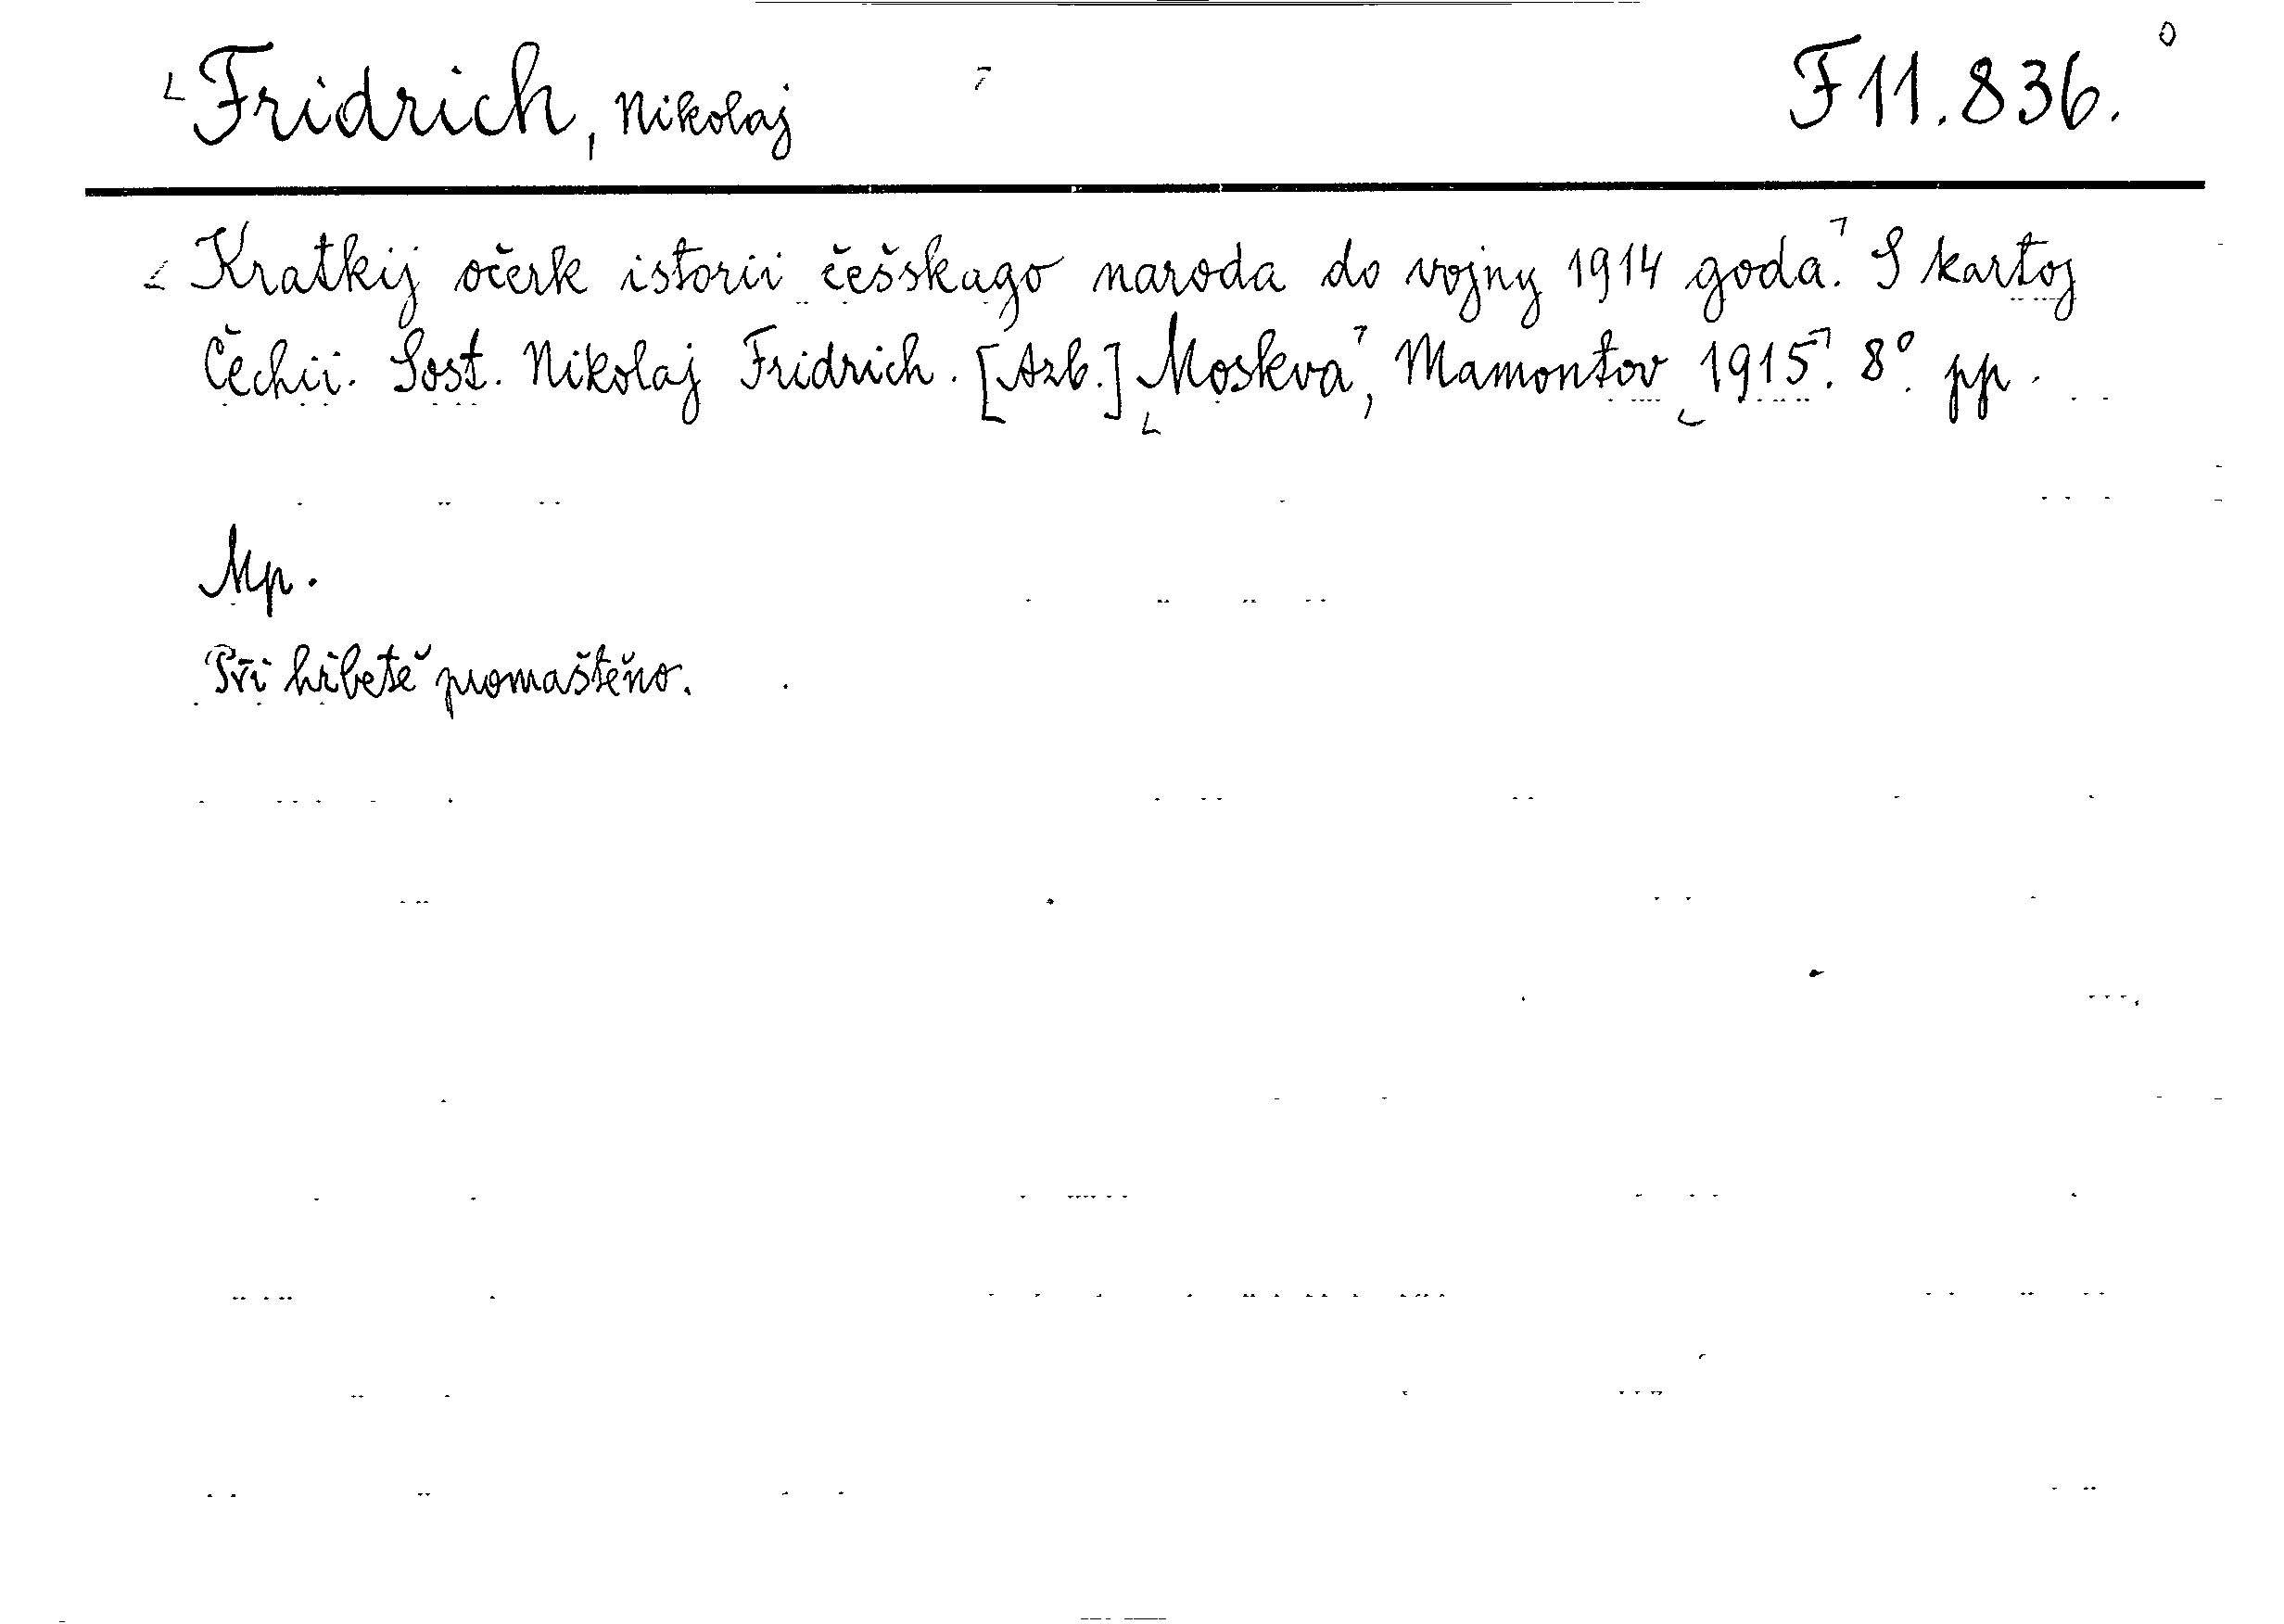 Fridrich, Nikolaj F 11.836.
Kratkij očerk istorii češskago naroda do vojny 1914 goda. S kartoj
Čechii. Sost. Nikolaj Fridrich. [Azb.] Moskva, Mamontov 1915. 8°. pp.
Mp.
Při hřbetě promaštěno.